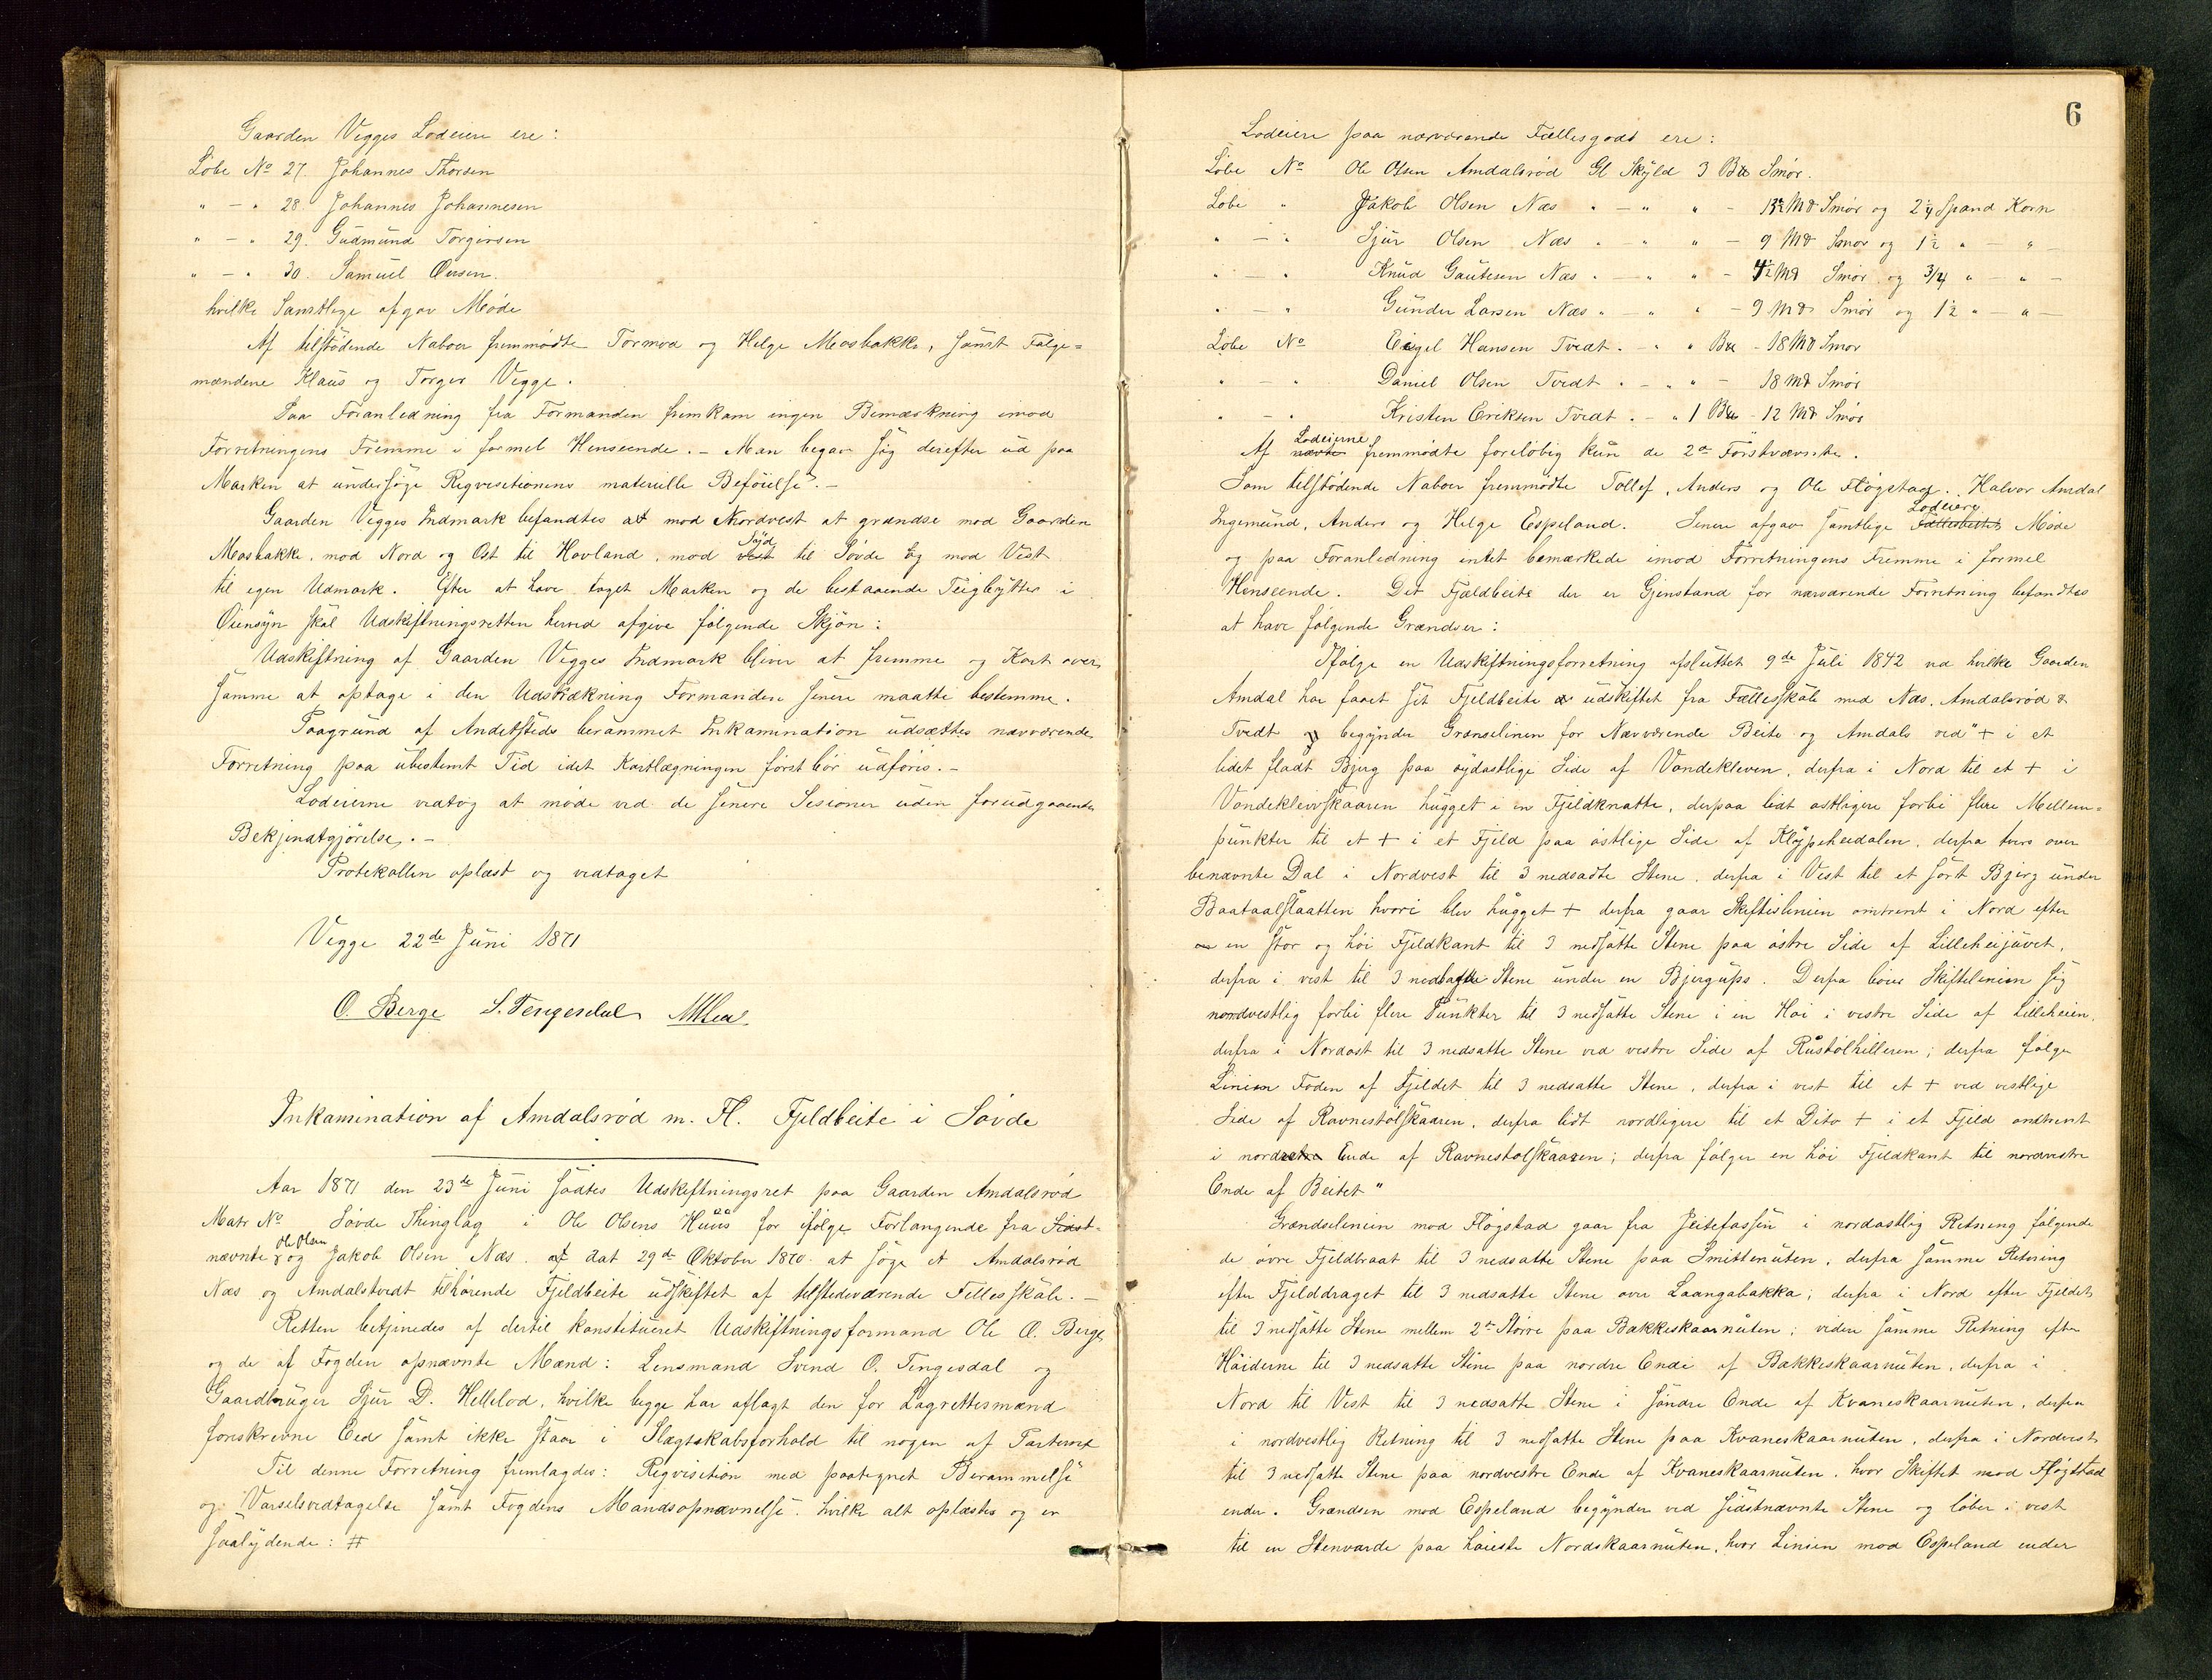 Gaarden Vegges Lodeiere ere:
Løbe No 27. Johannes Thorsen
" - " 28. Johannes Johannesen
" - " 29. Gudmund Torgersen
" - " 30. Samuel Osesen.
hvilke Samtlige afgav Møde
Af tilstødende Naboer fremmødte Tormod og Helge Mosbakke, samt Følge=
mændene Klaus og Torger Vegge.
Paa Foranledning fra Formanden fremkom ingen Bemærkning imod
Forretningens Fremme i formel Henseende. - Man begav sig derefter ud paa
Marken at undersøge Reqvisitionens materielle Beføielse. -
Gaarden Vegges Indmark befandtes at mod Nordvest at grændse mod Gaarden
Mosbakke, mod Nord og Øst til Hovland, mod vest Syd til Søvde og mod Vest
til egen Udmark. Efter at have taget Marken og de bestaaende Teigbytter i
Øiensyn skal Udskiftningsretten herved afgive følgende Skjøn:
Udskiftning af Gaarden Vegges Indmark bliver at fremme og Kart over
samme at optage i den Udstrækning Formanden senere maatte bestemme.
Paagrund af Andetsteds berammet Inkamination udsættes nærværende
Forretning paa ubestemt Tid idet Kartlægningen først bør udføres. -
Lodeierne vedtog at møde ved de senere Sesioner uden forudgaaende
Bekjendtgjørelse. -
Protokollen oplæst og vedtaget
Vegge 22de Juni 1871
O. Berge S. Tengesdal
Inkamination af Amdalsrød m. Fl. Fjeldbeite i Søvde
Aar 1871 den 23de Juni sadtes Udskiftningsret paa Gaarden Amdalsrød
Matr No Søvde Thinglag i Ole Olsens Huus for ifølge Forlangende fra Sidst-
nævnte Ole Olsen og Jakob Olsen Næs. af dat 29de Oktober 1870 at søge et Amdalsrød
Næs og Amdalstvedt tilhørende Fjeldbeite udskiftet af tilstedeværende Fellesskab. -
Retten betjenedes af dertil konstitueret Udskiftningsformand Ole O. Berge
og de af Fogden opnævnte Mænd: Lensmand Svend O. Tengesdal og
Gaardbruger Sjur D. Hellelod, hvilke begge har aflagt den for Lagrettesmænd
forskrevne Eed samt ikke staar i Slægtskabsforhold til nogen af Parterne
Til denne Forretning fremlagdes: Reqvisition med paategnet Berammelse
og Varselsvedtagelse samt Fogdens Mandsopnævnelse. hvilke alt oplæstes og er
saalydende: #
6
Lodeiere paa nærværende Fællesgodt ere:
Løbe No Ole Olsen Amdalsrød Gl Skyld 3 Bu Smør.
Løbe " Jakob Olsen Næs " - " " - 13½ Md Smør og 2¼ Spand Korn
" - " Sjur Olsen Næs " - " " - 9 Md Smør og 1½ " "-
" - " Knud Gautesen Næs " - " " - 4½ Md Smør og 3/4 " - " -
" - " Gunder Larsen Næs " - " " - 9 Md Smør og 1½ " - " -
Løbe No Eigel Hansen Tvedt. - " " Bu - 18 Md Smør
" - " Daniel Olsen Tvedt " - " " - 18 Md Smør
" - " Kristen Eriksen Tvedt. - " 1 Bu - 12 Md Smør
Af nævnte Lodeierne fremmødte foreløbig kun de 2de Førstnævnte.
Som tilstødende Naboer fremmødte Tollef, Anders og Ole Fløgstad. Halvor Amdal
Ingemund, Anders og Helge Espeland. Senere afgav samtlige Lodeiere Møde
og paa Foranledning intet bemærkede imod Forretningens Fremme i formel
Henseende. Det Fjældbeite der er Gjenstand for nærværende Forretning befandtes
at have følgende Grændser:
Ifølge en Udskiftningsforretning afsluttet 9de Juli 1842 ved hvilke Gaarden
Amdal har faaet sit Fjeldbeite udskiftet fra Fællesskab med Næs, Amdalsrød &
Tvedt begynder Grænselinen for Nærværende Beite og Amdals ved "+ i et
lidet fladt Bjerg paa sydostlige Side af Vondekleven, derfra i Nord til et + i
Vondeklevskaaren hugget i en Fjeldknatte, derpaa lidt østligere forbi flere Mellem=
punkter til et + i et Fjeld paa østlige Side af Kløpeheidalen, derfra tvers over
benævnte Dal i Nordvest til 3 nedsadte Stene, derfra i Vest til et sort Bjerg under
Baataalslaatten hvori blev hugget + derfra gaar Skiftelinien omtrent i Nord efter
en stor og høi Fjeldkant til 3 nedsatte Stene paa østre Side af Lilleheijuvet,
derfra i vest til 3 nedsatte Stene under en Bjergups. Derfra bøier Skiftelinien sig
nordvestlig forbi flere Punkter til 3 nedsatte Stene i en Høi i vestre Side af Lilleheien,
derfra i Nordost til 3 nedsatte Stene ved vestre Side af Rustølhelleren; derfra følger
Linien Foden af Fjeldet til 3 nedsatte Stene, derfra i vest til et + ved vestlige
Side af Ravnestølskaaren, derfra lidt nordligere til et Dito + i et Fjeld omtrent
i nordre Ende af Ravnestølskaaren; derfra følger en høi Fjeldkant til nordvestre
Ende af Beitet"
Grændselinien mod Fløgstad gaar fra Jeitefassen i nordostlig Retning følgende
de øvre Fjeldbraat til 3 nedsatte Stene paa Smittenuten, derfra samme Retning
efter Fjelddraget til 3 nedsatte Stene over Laangabakka; derfra i Nord efter Fjeldet
til 3 nedsatte Stene mellem 2de Større paa Bakkeskaarnuten; videre samme Retning efter
Høiderne til 3 nedsatte Stene paa nordre Ende af Bakkeskaarnuten, derfra i
Nord til Vest til 3 nedsatte Stene i søndre Ende af Kvaneskaarnuten, derfra
i nordvestlig Retning til 3 nedsatte Stene paa Kvaneskaarnuten, derfra i Nordvest
til 3 nedsatte Stene paa nordvestre Ende af Kvaneskaarnuten, hvor Skiftet mod Fløgstad
ender. Grændsen mod Espeland begynder ved sidstnævnte Stene og løber i vest
til en Stenvarde paa høieste Nordskaarnuten, hvor Linien mod Espeland ender